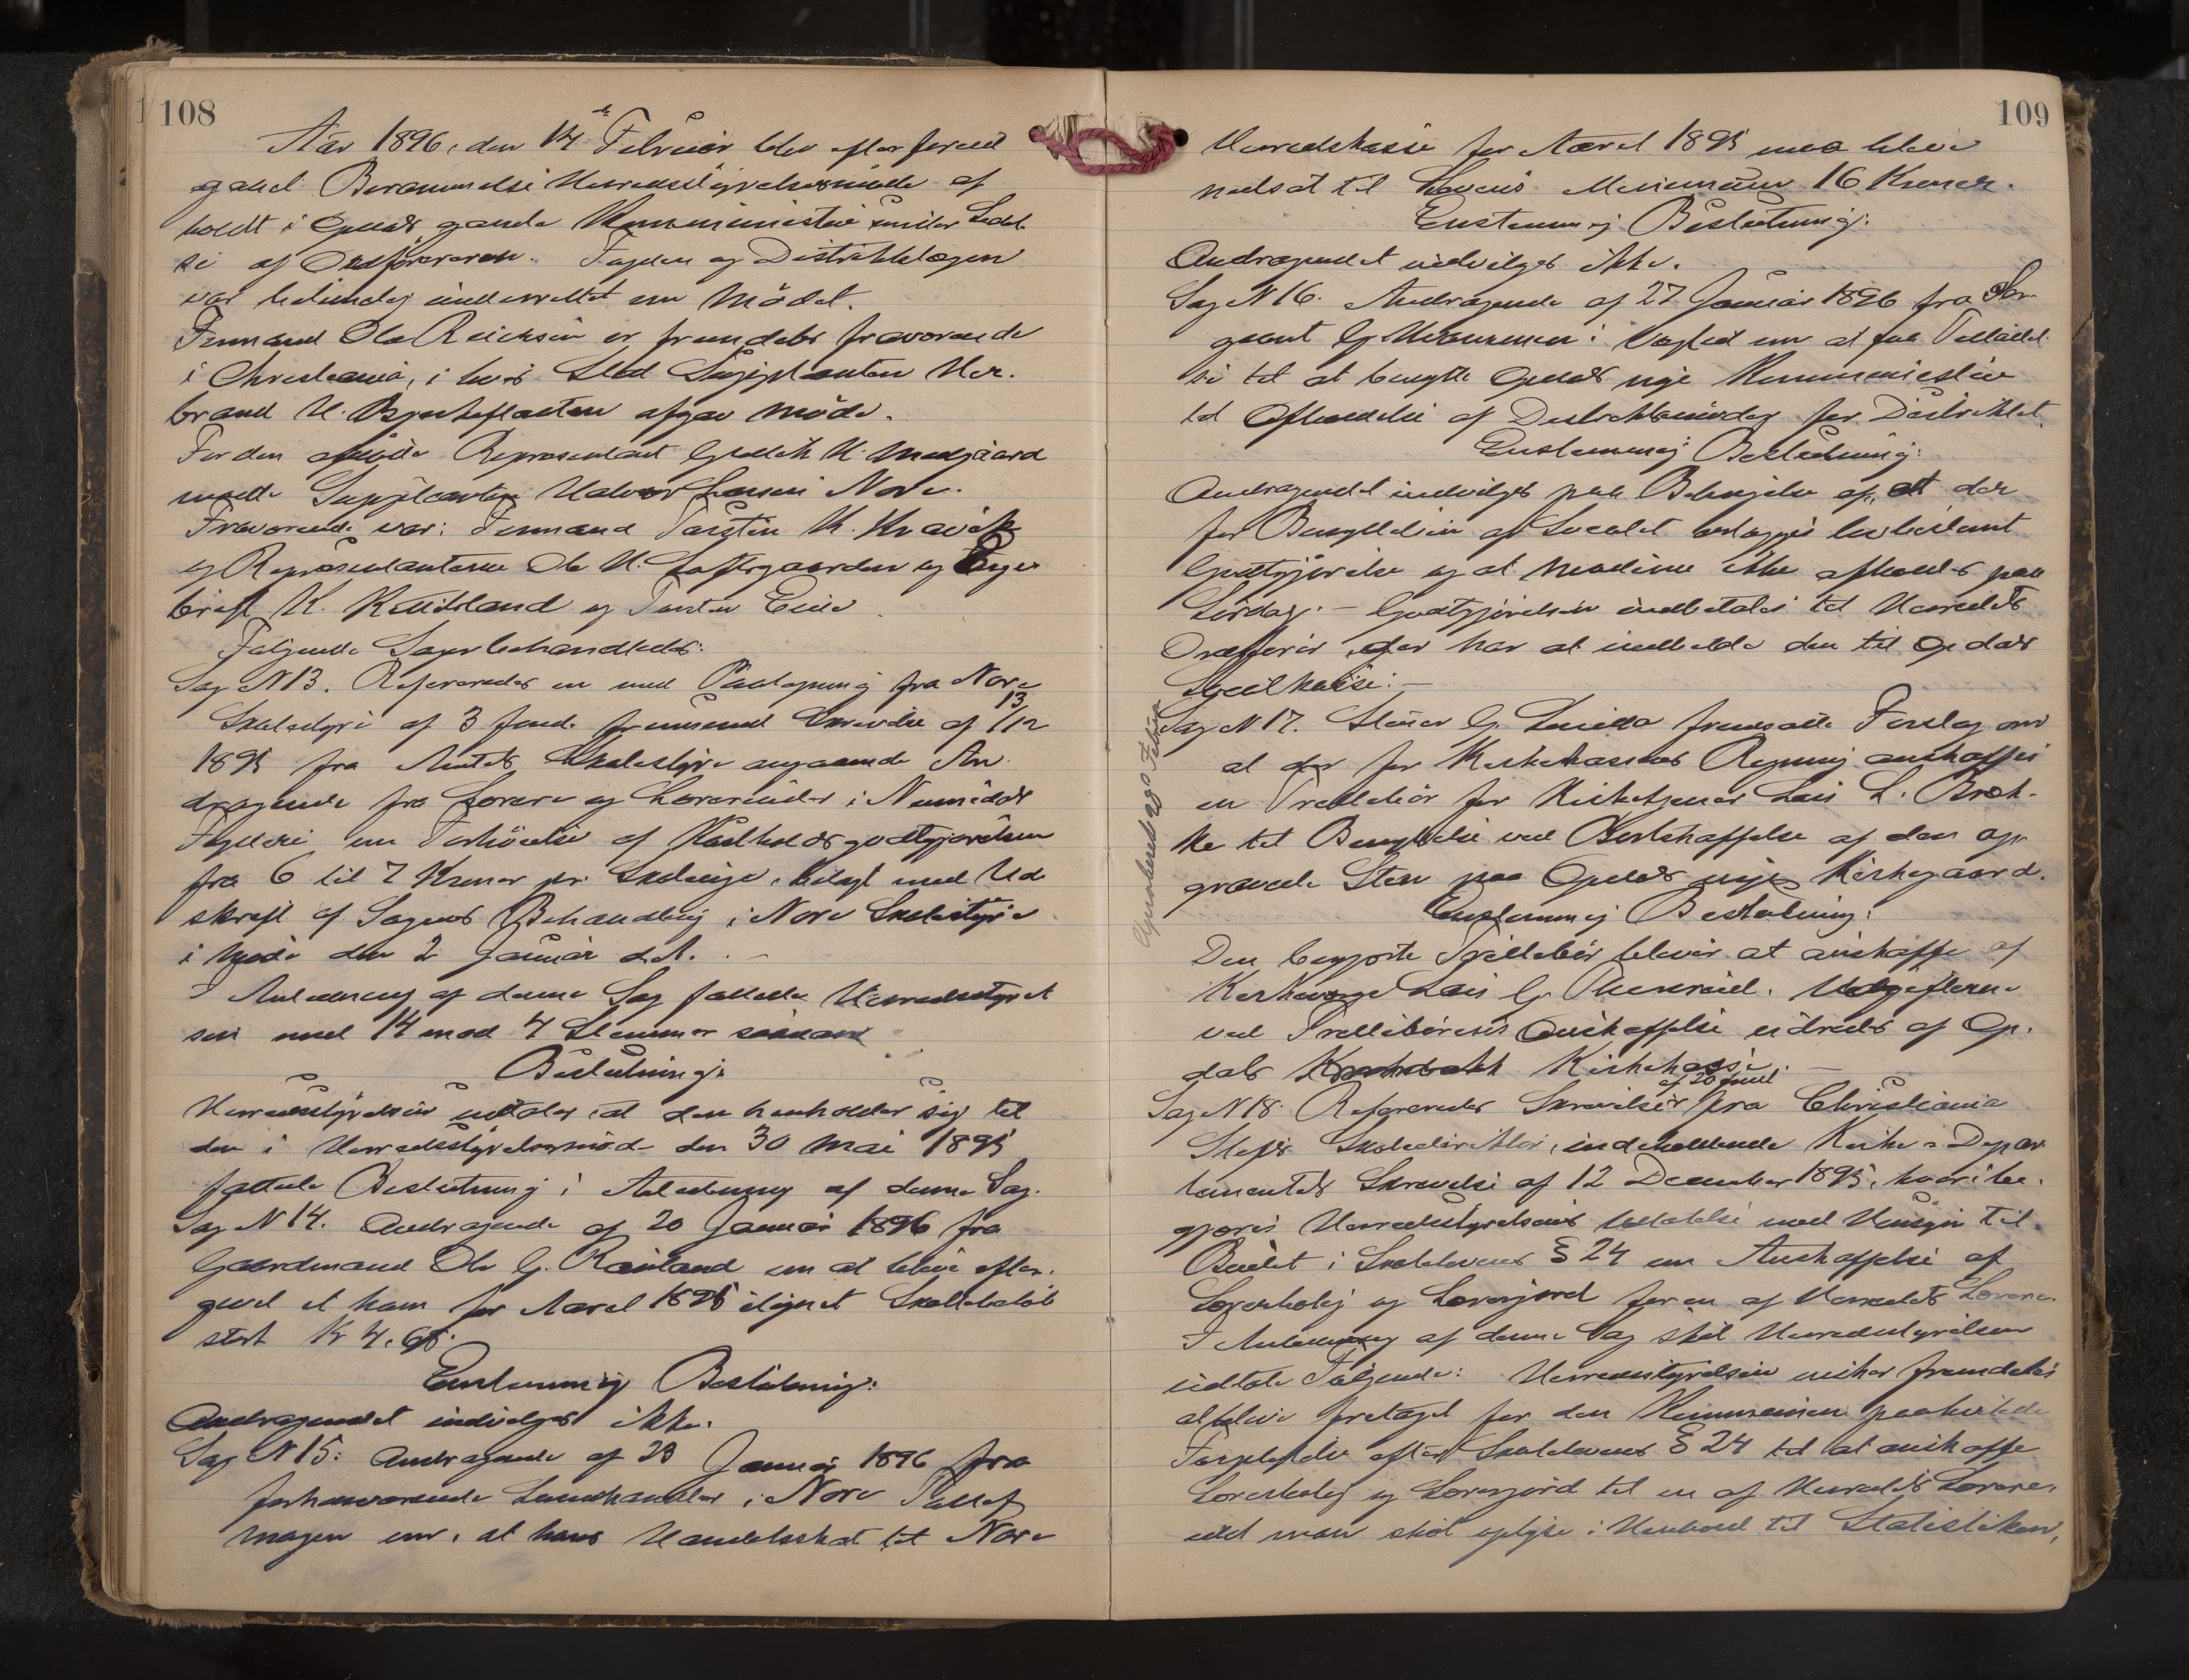 108
Aar 1896, den 14de Februar blev efter forud
gaaet Berammelse Herredsstyrelsesmøde af
holdt i Opdals gamle Kommunestue under Ledel
se af Ordføreren. Fogden og Distriktslægen
var betimelig underrettet om Mødet.
Formand Ola Ericksen er fremdeles fraværende
i Christiania, i hvis Sted Suppleanten Her.
brand H. Bjerkeflaaten afgav Møde.
For den afdøde Repræsentant Gulleik H. Medgaard
mødte Suppleanten Halvor Larsen Nore.
Fraværende var: Formand Torsten K. Kravik
og Repræsentanterne Ole H. Toftegaarden og Enge
bret K. Kittilsland og Torsten Eide
Følgende Sager behandledes:
Sag N 13. Refereredes en med Paategning fra Nore
Skolestyre af 3 fremsendt Skrivelse af 13/12
1895 fra Amtets Skolestyre angaaende An
dragende fra Lærere og Lærerinder i Numedals
Fogderi om Forhøielse af Kostholdsgodtgjørelsen
fra 6 til 7 Kroner pr. Skoleuge, bilagt med Ud
skrift af Sagens Behandling i Nore Skolestyre
i Møde den 2 Januar d.A. –
I Anledning af denne Sag fattede Herredsstyrel
sen med 14 mod 4 Stemmer saadan
Beslutning:
Herredsstyrelsen udtaler at den henholder sig til
den i Herredsstyrelsesmøde den 30 Mai 1895
fattede Beslutning i Anledning af denne Sag.
Sag N 14. Andragende af 20 Januar 1896 fra
Gaardmand Ole G. Rauland om at blive efter.
givet et ham for Aaret 1895 ilignet Skattebeløb
stort Kr 4.65.
Enstemmig Beslutning:
Andragendet indvilges ikke.
Sag N 15: Andragende af 23 Januar 1896 fra
forhenværende Landhandler i Nore Tollef
Mogen om, at hans Handelsskat til Nore
109
Herredskasse for Aaret 1895 maa blive
nedsat til Lovens Minimum 16 Kroner.
Enstemmig Beslutning:
Andragendet indvilges ikke.
Sag N 16. Andragende af 27 Januar 1896 fra Ser
geant G. Hvammen i Veglid om at faa Tilladel
se til at benytte Opdals nye Kommunestue
til Afholdelse af Distriktsmøder for Distriktet.
Enstemmig Beslutning:
Andragendet indvilges paa Betingelse af, at der
for Benyttelsen af Localet erlægges
Godtgjørelse og at Møderne ikke afholdes paa
Lørdag. – Godtgjørelsen indbetales til Herredets
Ordfører, der har at indbetale den til Opdals
Sognekasse. –
Sag N 17. Steinar G. fremsatte Forslag om
at der for Kirkekassens Regning anskaffes
en Trillebør for Kirketjener Lars L. Bræk-
ke til Benyttelse ved Bortskaffelse af den op
gravede Sten paa Opdals nye Kirkegaard.
Enstemmig Beslutning:
Den begjærte Trillebør bliver at anskaffe af
Kirkeværge Lars G. Udgifterne
ved Trillebørens Anskaffelse udredes af Op.
dals Kirkekasse. –
Sag N 18. Refereredes Skrivelser af 20 fra Christiania
Stifts Skoledirektør, indeholdende Kirke – Depar
tementets Skrivelse af 12 December 1895, hvori be.
gjæres Herredsstyrelsens Udtalelse med Hensyn til
Budet i Skolelovens § 24 om Anskaffelse af
Lærerbolig og Lærerjord for en af Herredets Lærere.
I Anledning af denne Sag skal Herredsstyrelsen
udtale Følgende: Herredsstyrelsen ønsker fremdeles
at blive fritaget for den Kommunen paahvilende
Forpligtelse efter Skolelovens § 24 til at anskaffe
Lærerbolig og Lærerjord til en af Herredets Lærere,
idet man skal oplyse i Henhold til Statistiken,